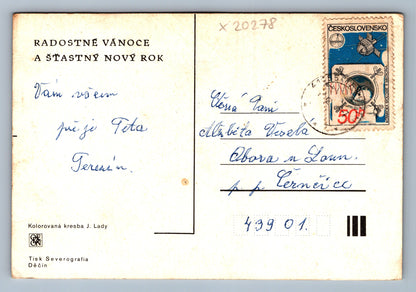 x 20278
RADOSTNÉ VÁNOCE
A ŠŤASTNÝ NOVÝ ROK
ČESKOSLOVENSKO
50h
Vám všem
přeje Teta
Terezín.
Vážená Paní
Obora u Loun.
p. p. Černčice
439 01.
Kolorovaná kresba J. Lady
Tisk Severografia
Děčín